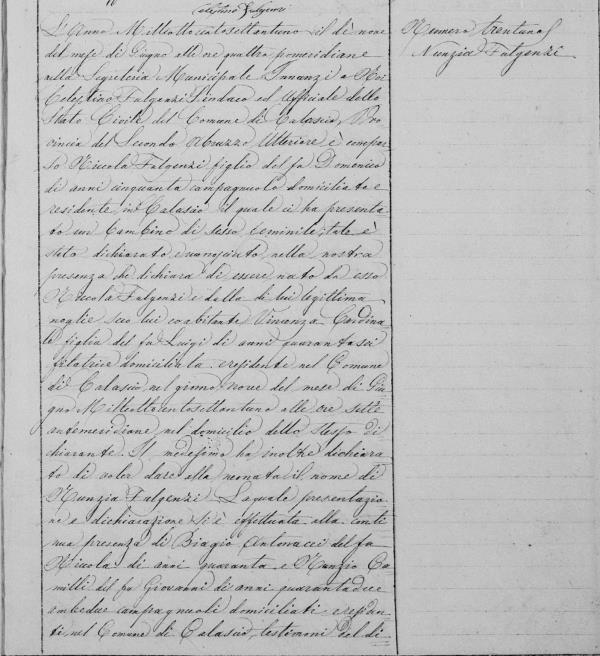 Celestino Fulgenzi
L'Anno Milleottocentosettantuno il dì nove
del mese di Giugno alle ore quattro pomeridiane
nella Segreteria Municipale Innanzi a Noi
Celestino Fulgenzi Sindaco ed Uffiziale dello
Stato Civile del Comune di Calascio, Pro
vincia del Secondo Abruzzo Ulteriore è compar
so Niccola Fulgenzi figlio del fu Domenico
di anni cinquanta campagnuolo domiciliato e
residente in Calascio il quale ci ha presenta
to un bambino di sesso feminile, tale è
stato dichiarato, e riconosciuto, nella nostra
presenza che dichiara di essere nato da esso
Niccola Fulgenzi e dalla di lui legittima
moglie seco lui coabitante Vincenza Cardina
le figlia del fu Luigi di anni quarantasei
filatrice domiciliata e residente nel Comune
di Calascio, nel giorno nove del mese di Giu
gno Milleottocentosettantuno alle ore sette
antemeridiane nel domicilio dello stesso di
chiarante. Il medesimo ha inoltre dichiara
to di voler dare alla neonata il nome di
Nunzia Fulgenzi. La quale presentazio
ne e dichiarazione si è effettuata alla conti
nua presenza di Biagio Antonacci del fu
Nicola di anni quaranta e Nunzio Ca
milli del fu Giovanni di anni quarantadue
ambedue campagnuoli domiciliati e residen
ti nel Comune di Calascio, testimoni del di-
Numero trentuno
Nunzia Fulgenzi